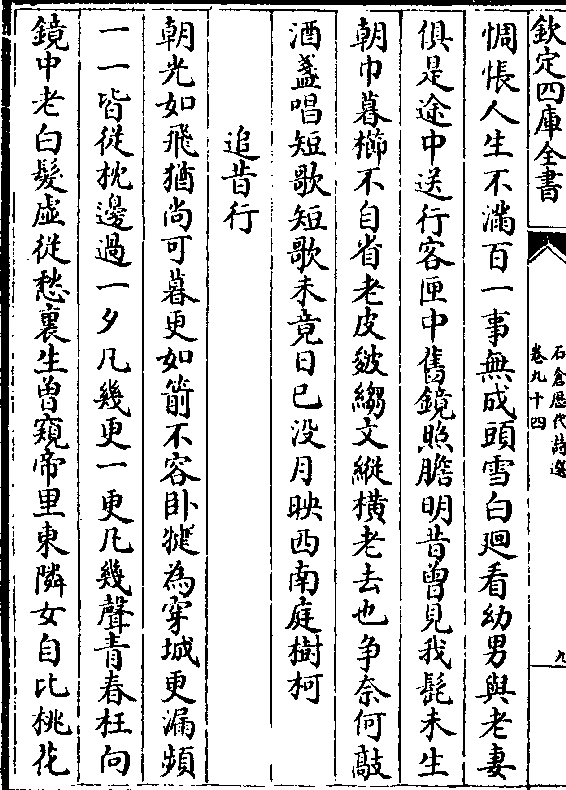 欽定四庫全書
石倉歴代詩選
卷九十四
九
惆悵人生不滿百一事無成頭雪白廻看幼男與老妻
俱是途中送行客匣中舊鏡照膽明昔曾見我髭未生
朝巾暮櫛不自省老皮皴縐文縱橫老去也争奈何敲
酒盞唱短歌短歌未竟日已没月映西南庭樹柯
追昔行
朝光如飛猶尚可暮更如箭不容卧
為穿城更漏頻
一一皆從枕邊過一夕凡幾更一更凡幾聲青春枉向
鏡中老白髮虚從愁裏生曾窺帝里東隣女自比桃花